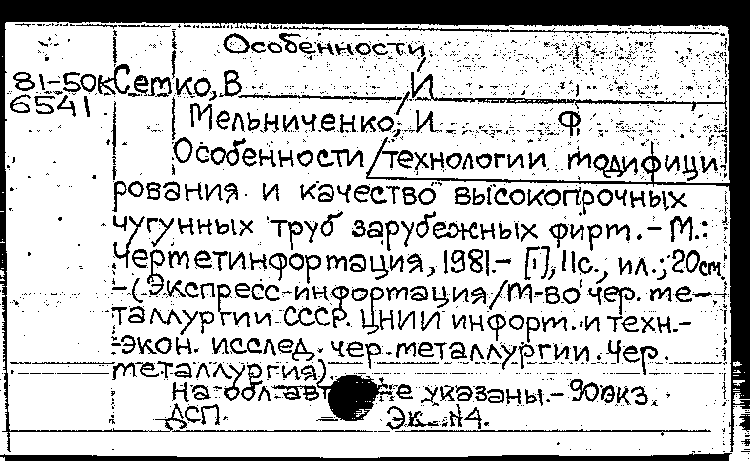 Особенности
81-50к Сетко, В И
6541
Мельниченко, И Ф
Особенности технологии модифици
рования и качество высокопрочных
чугунных труб зарубежных фирм. - М.:
Черметинформация, 1981. - [1], 11 с., ил.; 20 см
- (Экспресс-информация / М-во чер. ме-
таллургии СССР. ЦНИИ информ. и техн.-
-экон. исслед. чер. металлургии. Чер.
металлургия).
На обл. авт не указаны. - 900 экз.
ДСП. Эк. N4.